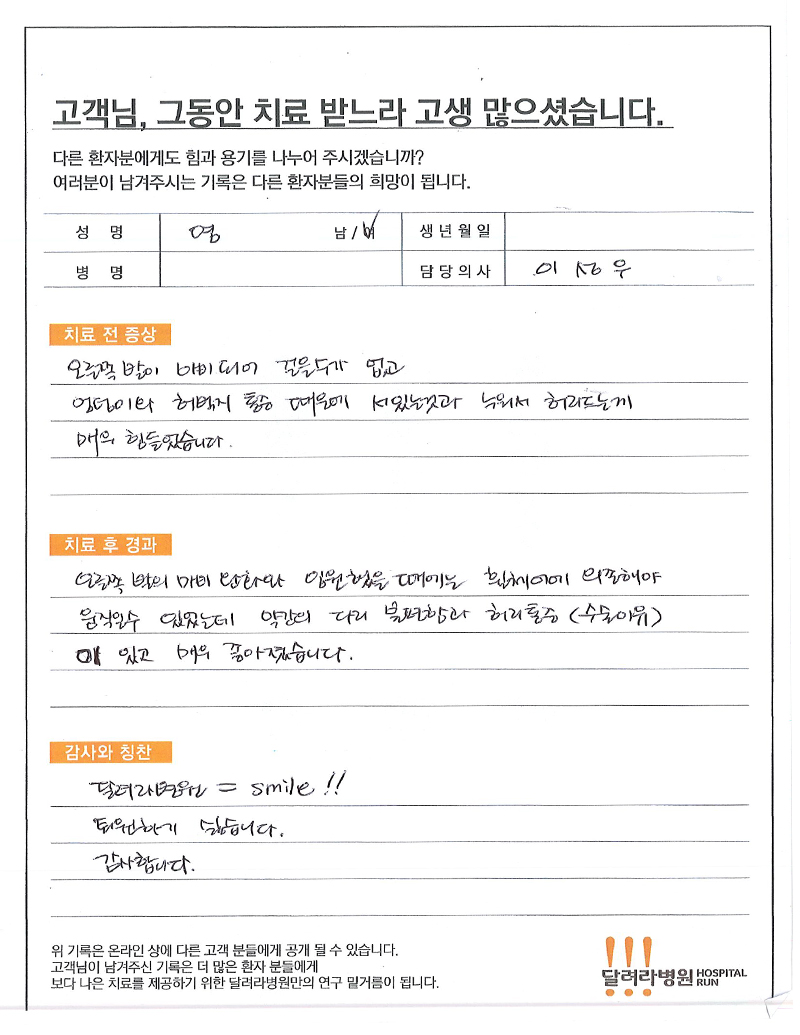 고객님, 그동안 치료 받느라 고생 많으셨습니다.
다른 환자분에게도 힘과 용기를 나누어 주시겠습니까?
여러분이 남겨주시는 기록은 다른 환자분들의 희망이 됩니다.
성 명 염 남 / 여 생년월일
병 명 담당의사 이상우
치료 전 증상
오른쪽 발이 마비되어 걸을수가 없고
엉덩이와 허벅지 통증 때문에 서있는것과 누워서 허리드는게
매우 힘들었습니다.
치료 후 경과
오른쪽 발의 마비 완화와 입원했을 때에는 휠체어에 의존해야
움직일수 있었는데 약간의 다리 불편함과 허리통증 (수술이유)
이 있고 매우 좋아졌습니다.
감사와 칭찬
달려라병원 = smile !!
퇴원하기 싫습니다.
감사합니다.
위 기록은 온라인 상에 다른 고객 분들에게 공개 될 수 있습니다.
고객님이 남겨주신 기록은 더 많은 환자 분들에게
보다 나은 치료를 제공하기 위한 달려라병원만의 연구 밑거름이 됩니다.
!!!
달려라병원 HOSPITAL RUN